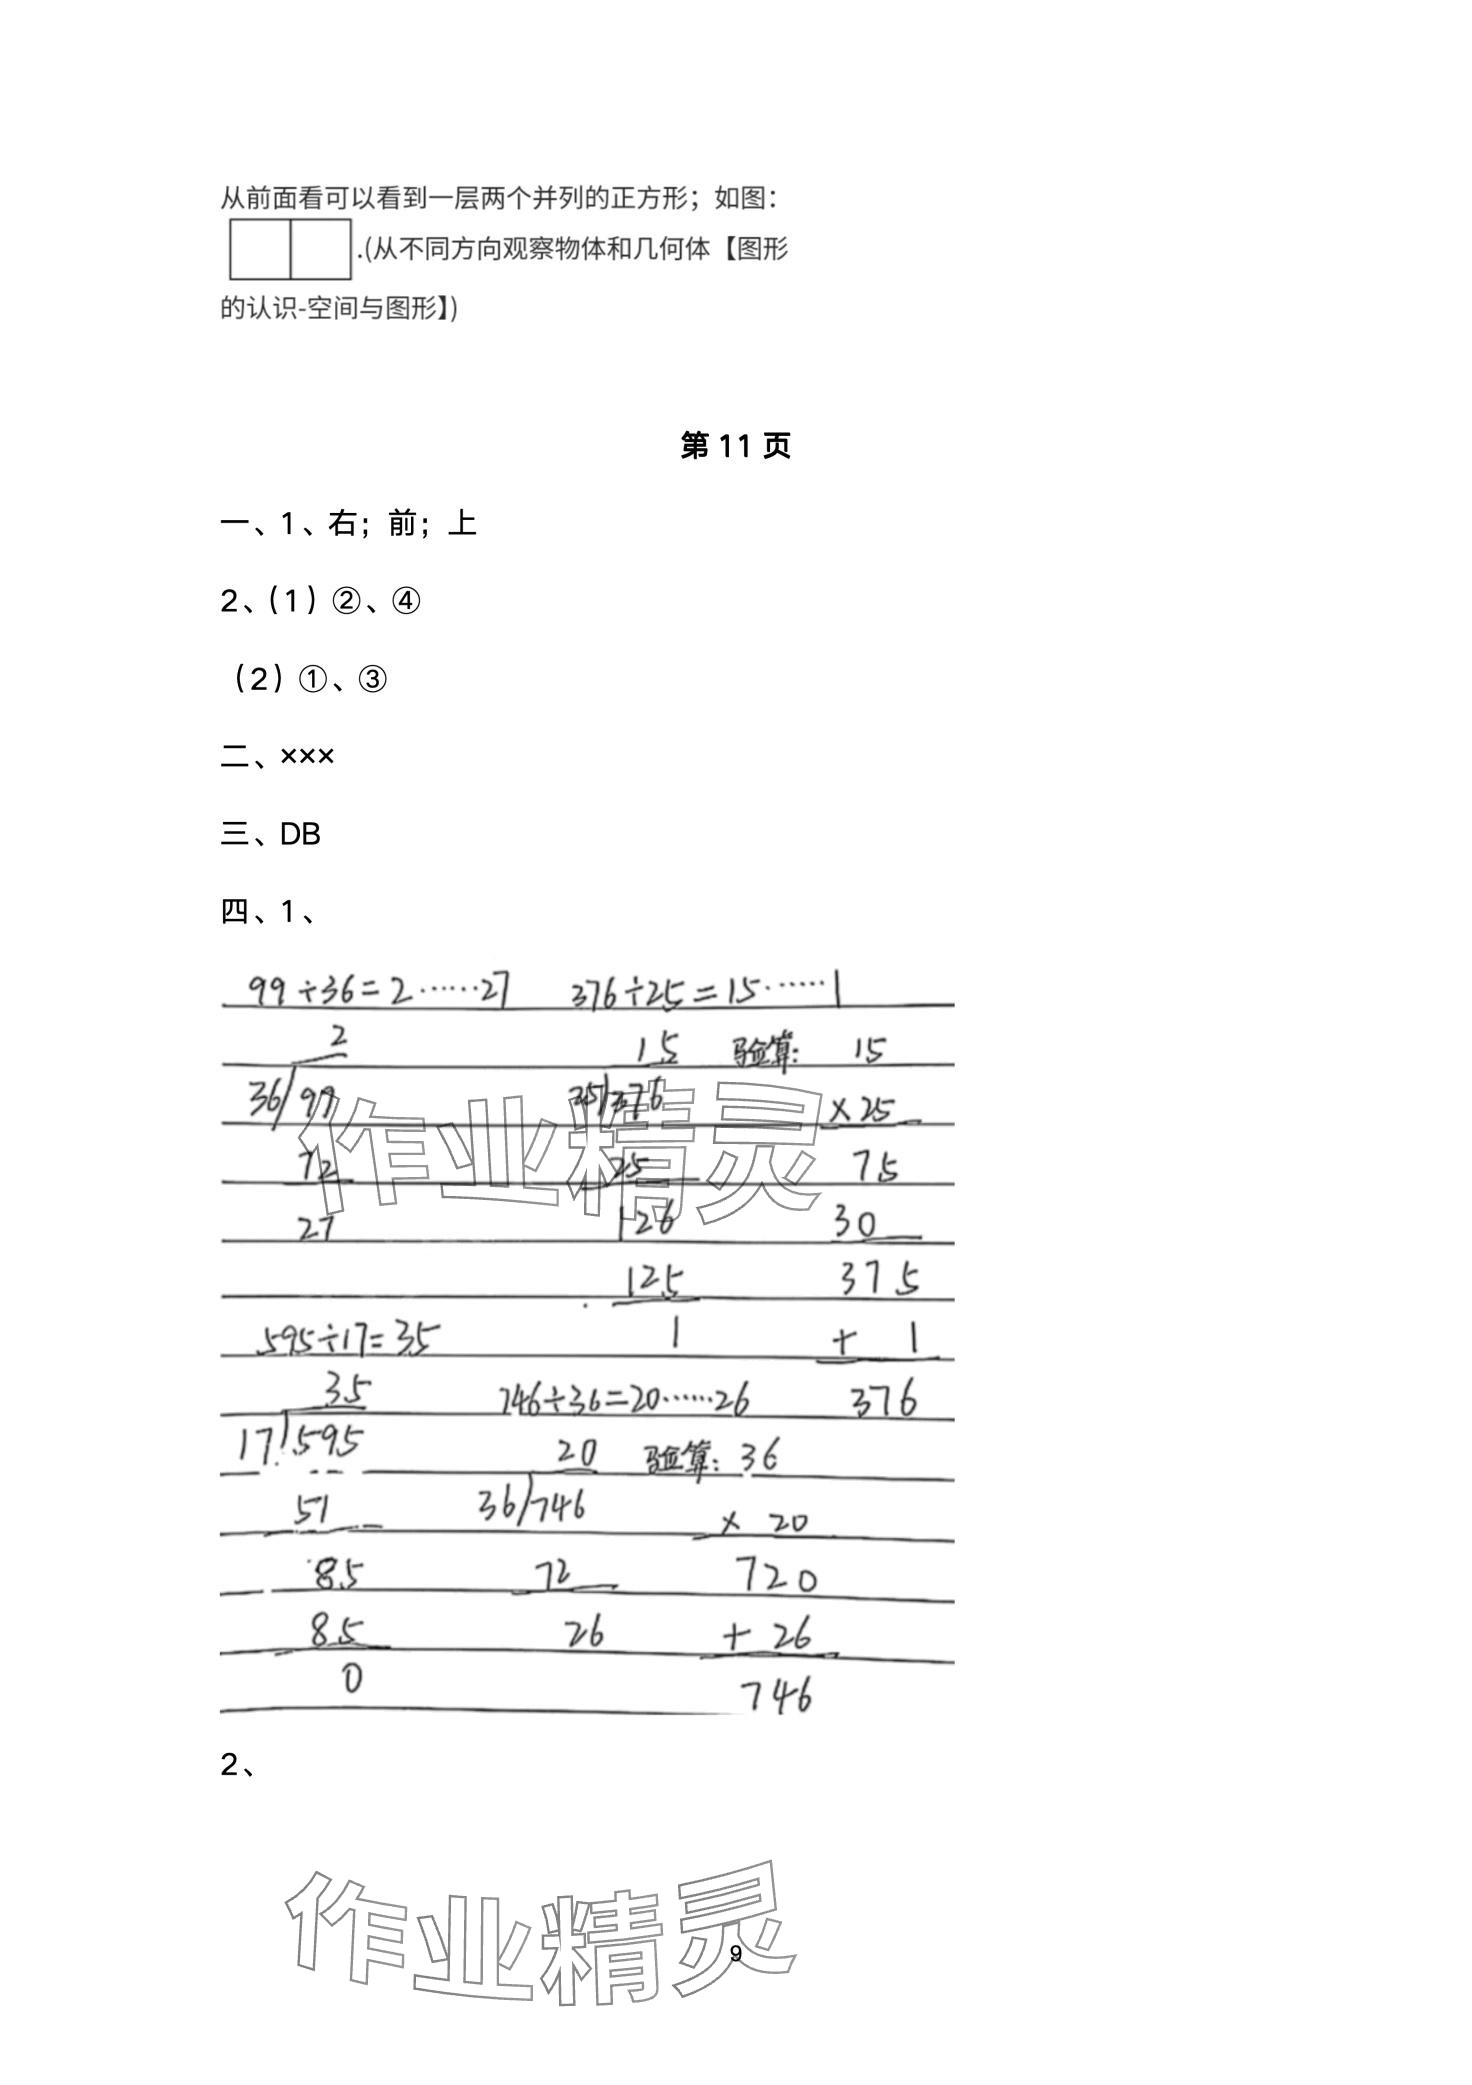 从前面看可以看到一层两个并列的正方形；如图：
.(从不同方向观察物体和几何体【图形
的认识-空间与图形】)
第 11 页
一、1、右；前；上
2、（1）②、④
（2）①、③
二、×××
三、DB
四、1、
99÷36=2……27 376÷25=15……1
2 15 验算： 15
36 99 25 376 ×25
72 25 75
27 126 30
125 375
595÷17=35 1 + 1
35 746÷36=20……26 376
17 595 20 验算：36
51 36 746 × 20
85 72 720
85 26 + 26
0 746
作业精灵
2、
作业精灵
9